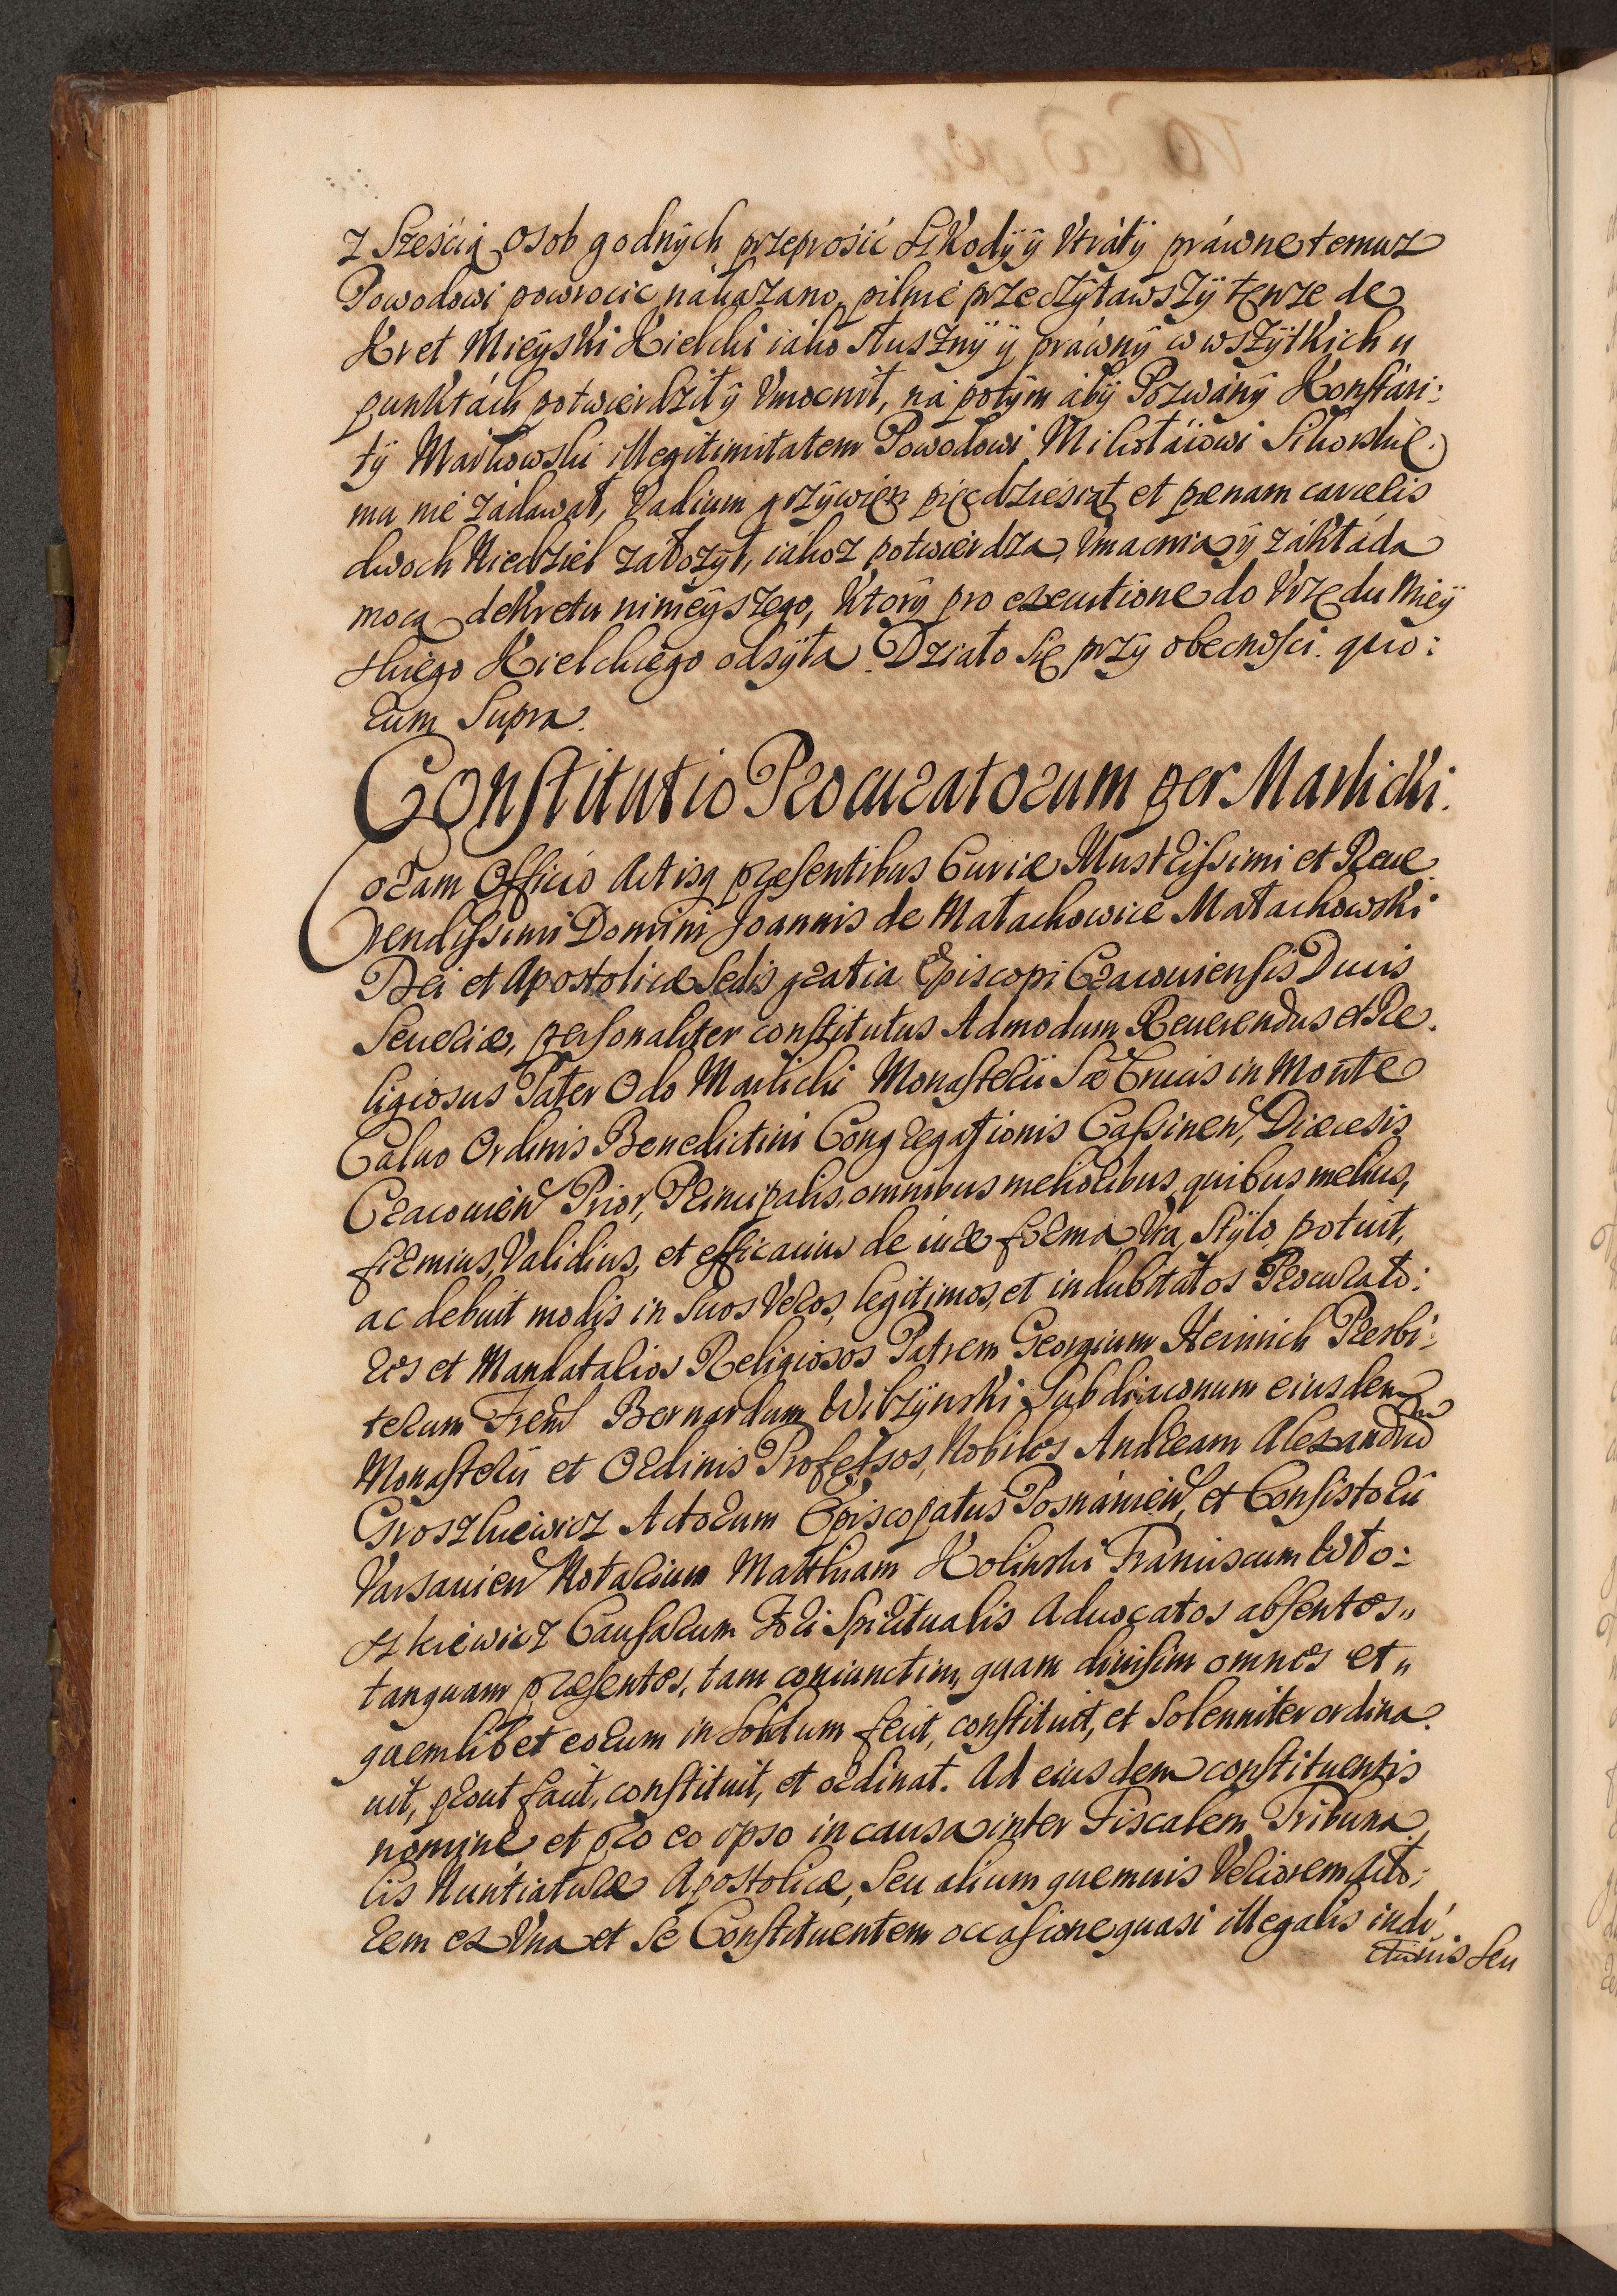 z Sześcią osob godnÿch przeprosić Szkodÿ ÿ Vtrátÿ práwne temusz
Powodowi powrocic nákazano, pilnie przeczÿtawszÿ tenze de
Kret Mieÿski Kielcki iáko słusznÿ ÿ práwnÿ w wszÿtkich
punktách potwierdził ÿ Vmocnił, ná potÿm abÿ Pozwánÿ Konstán:
tÿ Markowski illegitimitatem Powodowi Mikołáiowi Sikorskie.
mu nie zádawał, Vadium grzÿwien pięcdziesiąt et pœnam carcelis
dwoch Niedziel założÿł, iákoz potwierdza, Vmacnia ÿ zákłáda
mocą dekretu ninieÿszego, Ktorÿ pro executione do Vrzędu Mieÿ
skiego Kielckiego odsÿła. Działo się przÿ obecności. quo:
rum Supra.
Constitutio Procuratorum per Marlicki.
Coram Officio Actisq presentibus Curiæ Illustrissimi et Reue
rendissimi Domini Joannis de Małachowice Małachowski
Dei et Apostolicæ Sedis gratia Episcopi Cracouiensis Ducis
Seueriæ, personaliter constitutus Admodum Reuerendus et Re.
ligiosus Pater Odo Marlicki Monasterii Sæ Crucis in Monte
Caluo Ordinis Benedictini Congregationis Cassinen, Diæcesis
Cracouien Prior, Principalis, omnibus melioribus, quibus melius,
firmius, Validius, et efficacius de iure forma, Vra, Stÿlo, potuit,
ac debuit modis in suos Veros, legitimos, et indubitatos Procurato:
res et Mandatarios Religiosos Patrem Georgium Heinrich Presbi:
terum Frem Bernardum Wilzÿnski Subdiaconum eiusdem
Monasterii et Ordinis Professos, Nobiles Andream Alexandrũ
Groszkiewicz Actorum Episcopatus Posnánien, et Consistorii
Varsauien Notarium Matthiam Kolinski Franciscum Wto:
szkiewicz Causarum Fori Spiritualis Aduocatos absentes
tanquam presentes, tam coniunctim, quam diuisim omnes et
quemlibet eorum in solidum fecit, constituit, et Solenniter ordina
uit, prout facit, constituit, et ordinat. Ad eiusdem constituentis
nomine et pro eo ipso in causa inter Fiscalem Tribuna
lis Nuntiaturæ Apostolicæ, seu alium quemuis Veriorem Acto:
rem ex Vna et Se Constituentem occasione quasi illegalis indu
ctionis seu